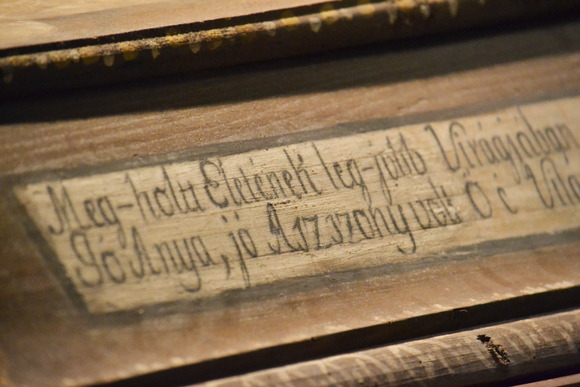 Meg-holt Eletének leg-jobb Virágjában
Jó Anya, jó Aszszony volt Ő é